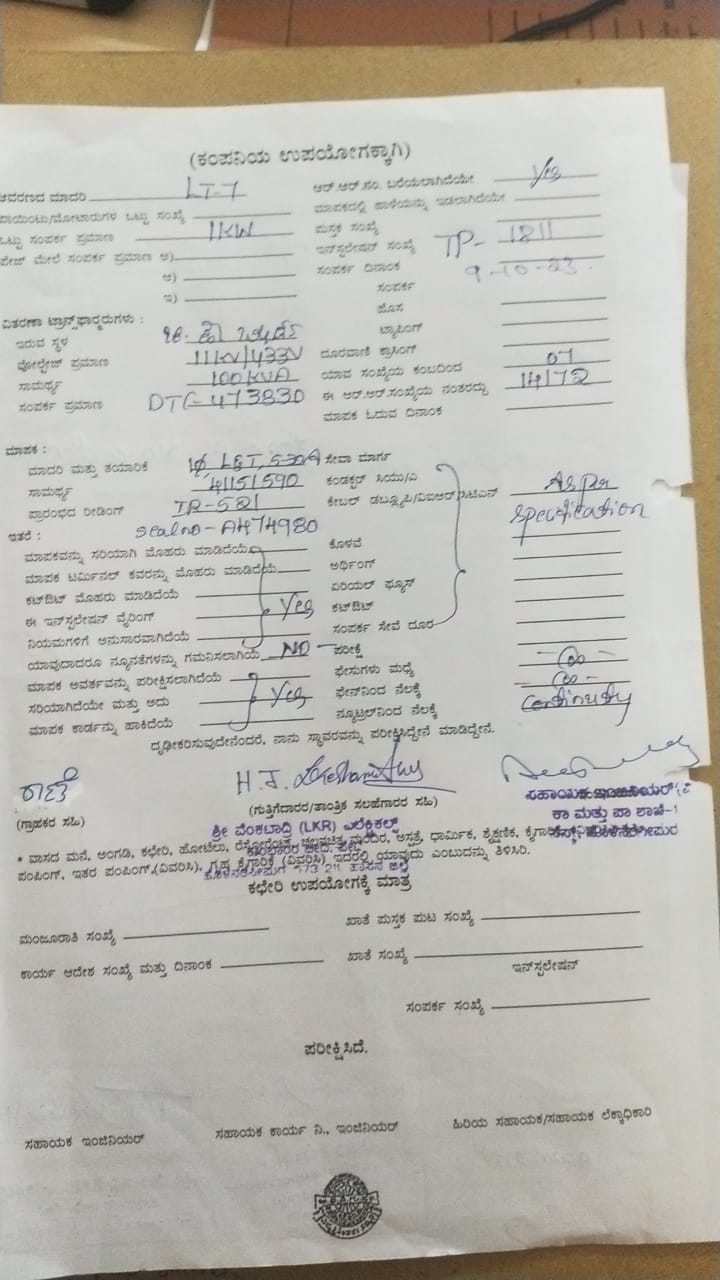 (ಕಂಪನಿಯ ಉಪಯೋಗಕ್ಕಾಗಿ)
ಆವರಣದ ಮಾದರಿ LT-7 ಆರ್.ಆರ್.ನಂ. ಬರೆಯಲಾಗಿದೆಯೇ Yes
ಪಾಯಿಂಟು/ಮೋಟಾರುಗಳ ಒಟ್ಟು ಸಂಖ್ಯೆ ಮಾಪಕದಲ್ಲಿ ಹಾಳೆಯನ್ನು ಇಡಲಾಗಿದೆಯೇ
ಒಟ್ಟು ಸಂಪರ್ಕ ಪ್ರಮಾಣ 1KW ಪುಸ್ತಕ ಸಂಖ್ಯೆ
ಪೇಜ್ ಮೇಲೆ ಸಂಪರ್ಕ ಪ್ರಮಾಣ ಅ) ಇನ್‌ಸ್ಟಲೇಷನ್ ಸಂಖ್ಯೆ TP- 1811
ಆ) ಸಂಪರ್ಕ ದಿನಾಂಕ 9-10-23.
ಇ) ಸಂಪರ್ಕ
ಹೊಸ
ವಿತರಣಾ ಟ್ರಾನ್ಸ್‌ಫಾರ್ಮರುಗಳು : ಟ್ಯಾಪಿಂಗ್
ಇರುವ ಸ್ಥಳ
ವೋಲ್ಟೇಜ್ ಪ್ರಮಾಣ 11KV/433V ದೂರವಾಣಿ ಕ್ರಾಸಿಂಗ್
ಸಾಮರ್ಥ್ಯ 100KVA ಯಾವ ಸಂಖ್ಯೆಯ ಕಂಬದಿಂದ 07
ಸಂಪರ್ಕ ಪ್ರಮಾಣ DTC-473830 ಈ ಆರ್.ಆರ್.ಸಂಖ್ಯೆಯ ನಂತರದ್ದು 14172
ಮಾಪಕ ಓದುವ ದಿನಾಂಕ
ಮಾಪಕ :
ಮಾದರಿ ಮತ್ತು ತಯಾರಿಕೆ 1φ L&T, 5-30A ಸೇವಾ ಮಾರ್ಗ
ಸಾಮರ್ಥ್ಯ 41151590 ಕಂಡಕ್ಟರ್ ಸಿಯು/ಎ
ಪ್ರಾರಂಭದ ರೀಡಿಂಗ್ IR-581 ಕೇಬಲ್ ಡಬ್ಲ್ಯೂಪಿ/ವಿಐಆರ್/ಸಿಟಿಎಸ್ As per
ಇತರೆ : Seal no-A474980 Specification
ಮಾಪಕವನ್ನು ಸರಿಯಾಗಿ ಮೊಹರು ಮಾಡಿದೆಯೆ ಕೊಳವೆ
ಮಾಪಕ ಟರ್ಮಿನಲ್ ಕವರನ್ನು ಮೊಹರು ಮಾಡಿದೆಯೆ ಅರ್ಥಿಂಗ್
ಕಟ್‌ಔಟ್ ಮೊಹರು ಮಾಡಿದೆಯೆ ಏರಿಯಲ್ ಫ್ಯೂಸ್
ಈ ಇನ್‌ಸ್ಟಲೇಷನ್ ವೈರಿಂಗ್ Yes ಕಟ್‌ಔಟ್
ನಿಯಮಗಳಿಗೆ ಅನುಸಾರವಾಗಿದೆಯೆ ಸಂಪರ್ಕ ಸೇವೆ ದೂರ
ಯಾವುದಾದರೂ ನ್ಯೂನತೆಗಳನ್ನು ಗಮನಿಸಲಾಗಿಯೆ NO ಪರೀಕ್ಷೆ
ಮಾಪಕ ಆವರ್ತವನ್ನು ಪರೀಕ್ಷಿಸಲಾಗಿದೆಯೆ ಫೇಸುಗಳು ಮಧ್ಯೆ ∞
ಸರಿಯಾಗಿದೆಯೇ ಮತ್ತು ಅದು Yes ಫೇಸ್‌ನಿಂದ ನೆಲಕ್ಕೆ ∞
ಮಾಪಕ ಕಾರ್ಡನ್ನು ಹಾಕಿದೆಯೆ ನ್ಯೂಟ್ರಲ್‌ನಿಂದ ನೆಲಕ್ಕೆ Continuty
ದೃಢೀಕರಿಸುವುದೇನೆಂದರೆ, ನಾನು ಸ್ಥಾವರವನ್ನು ಪರೀಕ್ಷಿಸಿದ್ದೇನೆ ಮಾಡಿದ್ದೇನೆ.
(ಗ್ರಾಹಕರ ಸಹಿ) (ಗುತ್ತಿಗೆದಾರರ/ತಾಂತ್ರಿಕ ಸಲಹೆಗಾರರ ಸಹಿ) ಸಹಾಯಕ ಇಂಜಿನಿಯರ್
ಶ್ರೀ ವೆಂಕಟಾದ್ರಿ (LKR) ಎಲೆಕ್ಟ್ರಿಕಲ್ಸ್ ಕಾ ಮತ್ತು ಪಾ ಶಾಖೆ-1
* ವಾಸದ ಮನೆ, ಅಂಗಡಿ, ಕಛೇರಿ, ಹೋಟೆಲು, ರೆಸ್ಟೋರೆಂಟ್, ಚಲನಚಿತ್ರ ಮಂದಿರ, ಆಸ್ಪತ್ರೆ, ಧಾರ್ಮಿಕ, ಶೈಕ್ಷಣಿಕ,
ಪಂಪಿಂಗ್, ಇತರ ಪಂಪಿಂಗ್,(ವಿವರಿಸಿ), ಗೃಹ ಕೈಗಾರಿಕೆ (ವಿವರಿಸಿ) ಇದರಲ್ಲಿ ಯಾವುದು ಎಂಬುದನ್ನು ತಿಳಿಸಿರಿ.
ಕಛೇರಿ ಉಪಯೋಗಕ್ಕೆ ಮಾತ್ರ
ಮಂಜೂರಾತಿ ಸಂಖ್ಯೆ ಖಾತೆ ಪುಸ್ತಕ ಪುಟ ಸಂಖ್ಯೆ
ಕಾರ್ಯ ಆದೇಶ ಸಂಖ್ಯೆ ಮತ್ತು ದಿನಾಂಕ ಖಾತೆ ಸಂಖ್ಯೆ
ಇನ್‌ಸ್ಟಲೇಷನ್
ಸಂಪರ್ಕ ಸಂಖ್ಯೆ
ಪರೀಕ್ಷಿಸಿದೆ.
ಸಹಾಯಕ ಇಂಜಿನಿಯರ್ ಸಹಾಯಕ ಕಾರ್ಯ ನಿ., ಇಂಜಿನಿಯರ್ ಹಿರಿಯ ಸಹಾಯಕ/ಸಹಾಯಕ ಲೆಕ್ಕಾಧಿಕಾರಿ